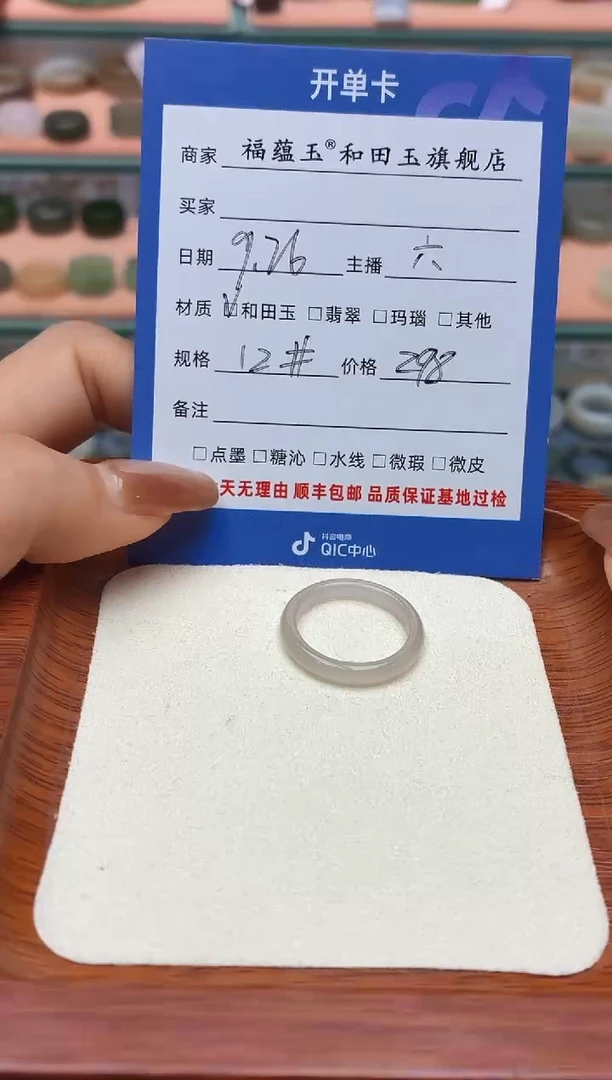 开单卡
商家 福蕴玉®和田玉旗舰店
买家
日期 9.26 主播 六
材质 ☑和田玉 □翡翠 □玛瑙 □其他
规格 12# 价格 298
备注
□点墨 □糖沁 □水线 □微瑕 □微皮
天无理由 顺丰包邮 品质保证基地过检
抖音电商
QIC中心